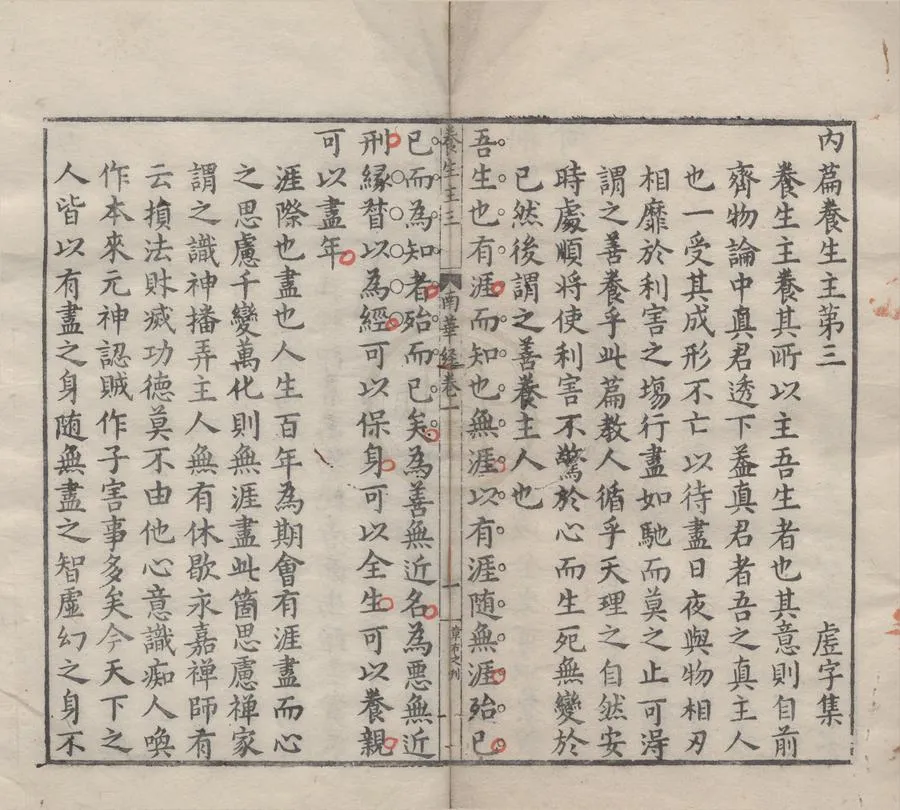 內篇養生主第三　虛字集
養生主養其所以主吾生者也其意則自前
齊物論中真君透下葢真君者吾之真主人
也一受其成形不亡以待盡日夜與物相刃
相靡於利害之場行盡如馳而莫之止可淂
謂之善養乎此篇教人循乎天理之自然安
時處順將使利害不驚於心而生死無變於
已然後謂之善養主人也
吾生也有涯而知也無涯以有涯隨無涯殆已
養生主三　南華經卷一　一
已而為知者殆而已矣為善無近名為惡無近
刑緣督以為經可以保身可以全生可以養親
可以盡年
涯際也盡也人生百年為期會有涯盡而心
之思慮千變萬化則無涯盡此箇思慮禅家
謂之識神播弄主人無有休歇永嘉禅師有
云損法財㓕功德莫不由他心意識痴人喚
作本來元神認賊作子害事多矣今天下之
人皆以有盡之身随無盡之智虛幻之身不